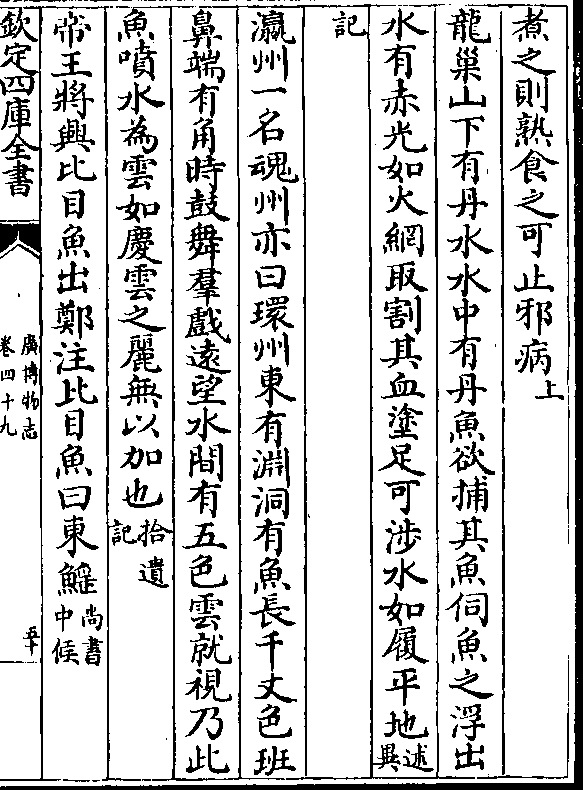 煮之則熟食之可止邪病上
龍巢山下有丹水水中有丹魚欲捕其魚伺魚之浮出
水有赤光如火網取割其血塗足可涉水如履平地述異
記
瀛州一名魂州亦曰環州東有淵洞有魚長千丈色班
鼻端有角時鼓舞羣戲遠望水間有五色雲就視乃此
魚噴水為雲如慶雲之麗無以加也拾遺記
帝王將興比目魚出鄭注比目魚曰東鰩尚書中候
欽定四庫全書
廣博物志
卷四十九
五十